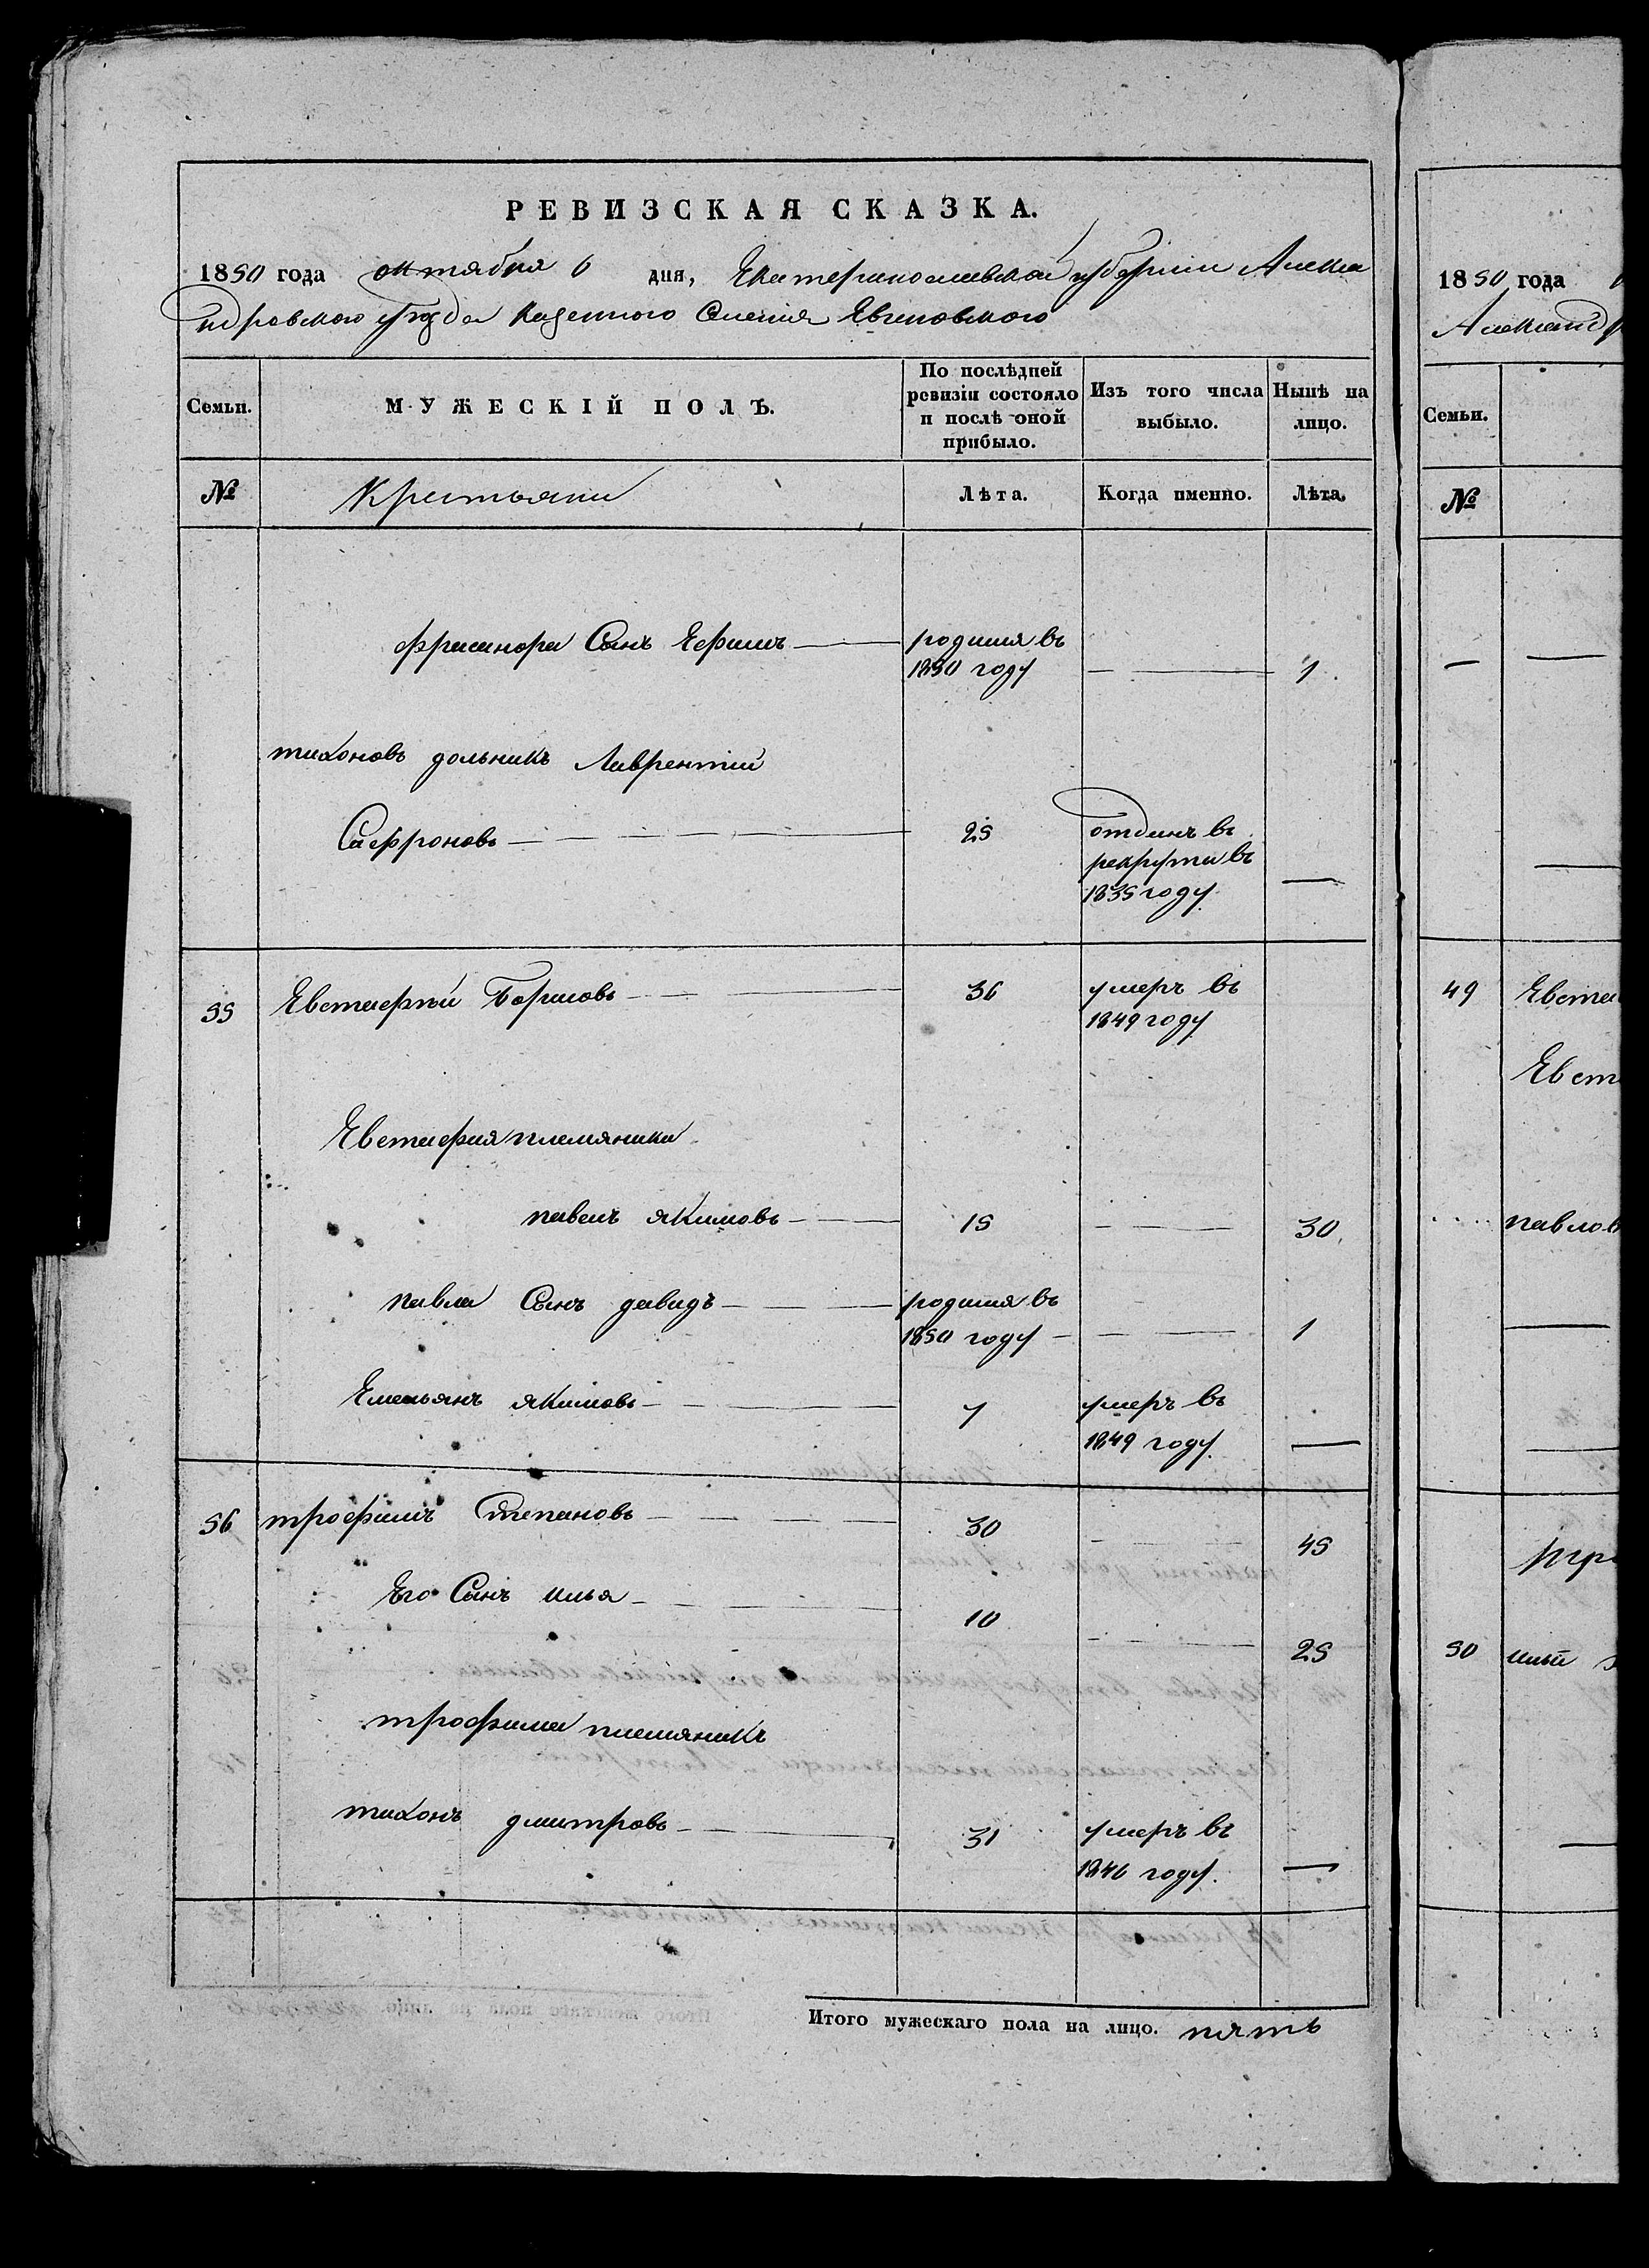 РЕВИЗСКАЯ СКАЗКА.
1850 года октября 6 дня, Екатеринославской губернии Алекса
ндровского уезда казенного Селения Евгеновского
Семьи.
МУЖЕСКІЙ ПОЛЪ.
По послѣдней
ревизіи состояло
и послѣ оной
прибыло.
Изъ того числа
выбыло.
Нынѣ на
лицо.
№
Крестьяни
Лѣта.
Когда именно.
Лѣта.
Сынъ Ефимъ
родился въ
1850 году
1
тихоновъ дольникъ Лаврентий
Сафроновъ
25
отданъ въ
рекруты въ
1835 году
55
Евстафѣй Борисовъ
36
умеръ въ
1849 году
Евстафия племяники
павелъ якимовъ
15
30
павла Сынъ давидъ
родился въ
1850 году
1
Емельянъ якимовъ
7
умеръ въ
1849 году
56
трофимъ Степановъ
30
45
Его Сынъ илья
10
25
трофима племяникъ
тихонъ дмитровъ
31
умеръ въ
1846 году
Итого мужескаго пола на лицо. пять
1850 года
Александр
Семьи.
№
49
Евста
Евст
павлов
50